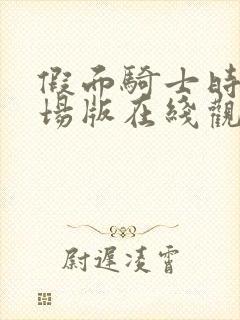 假面騎士時
場版在綫觀
尉遲凌霄